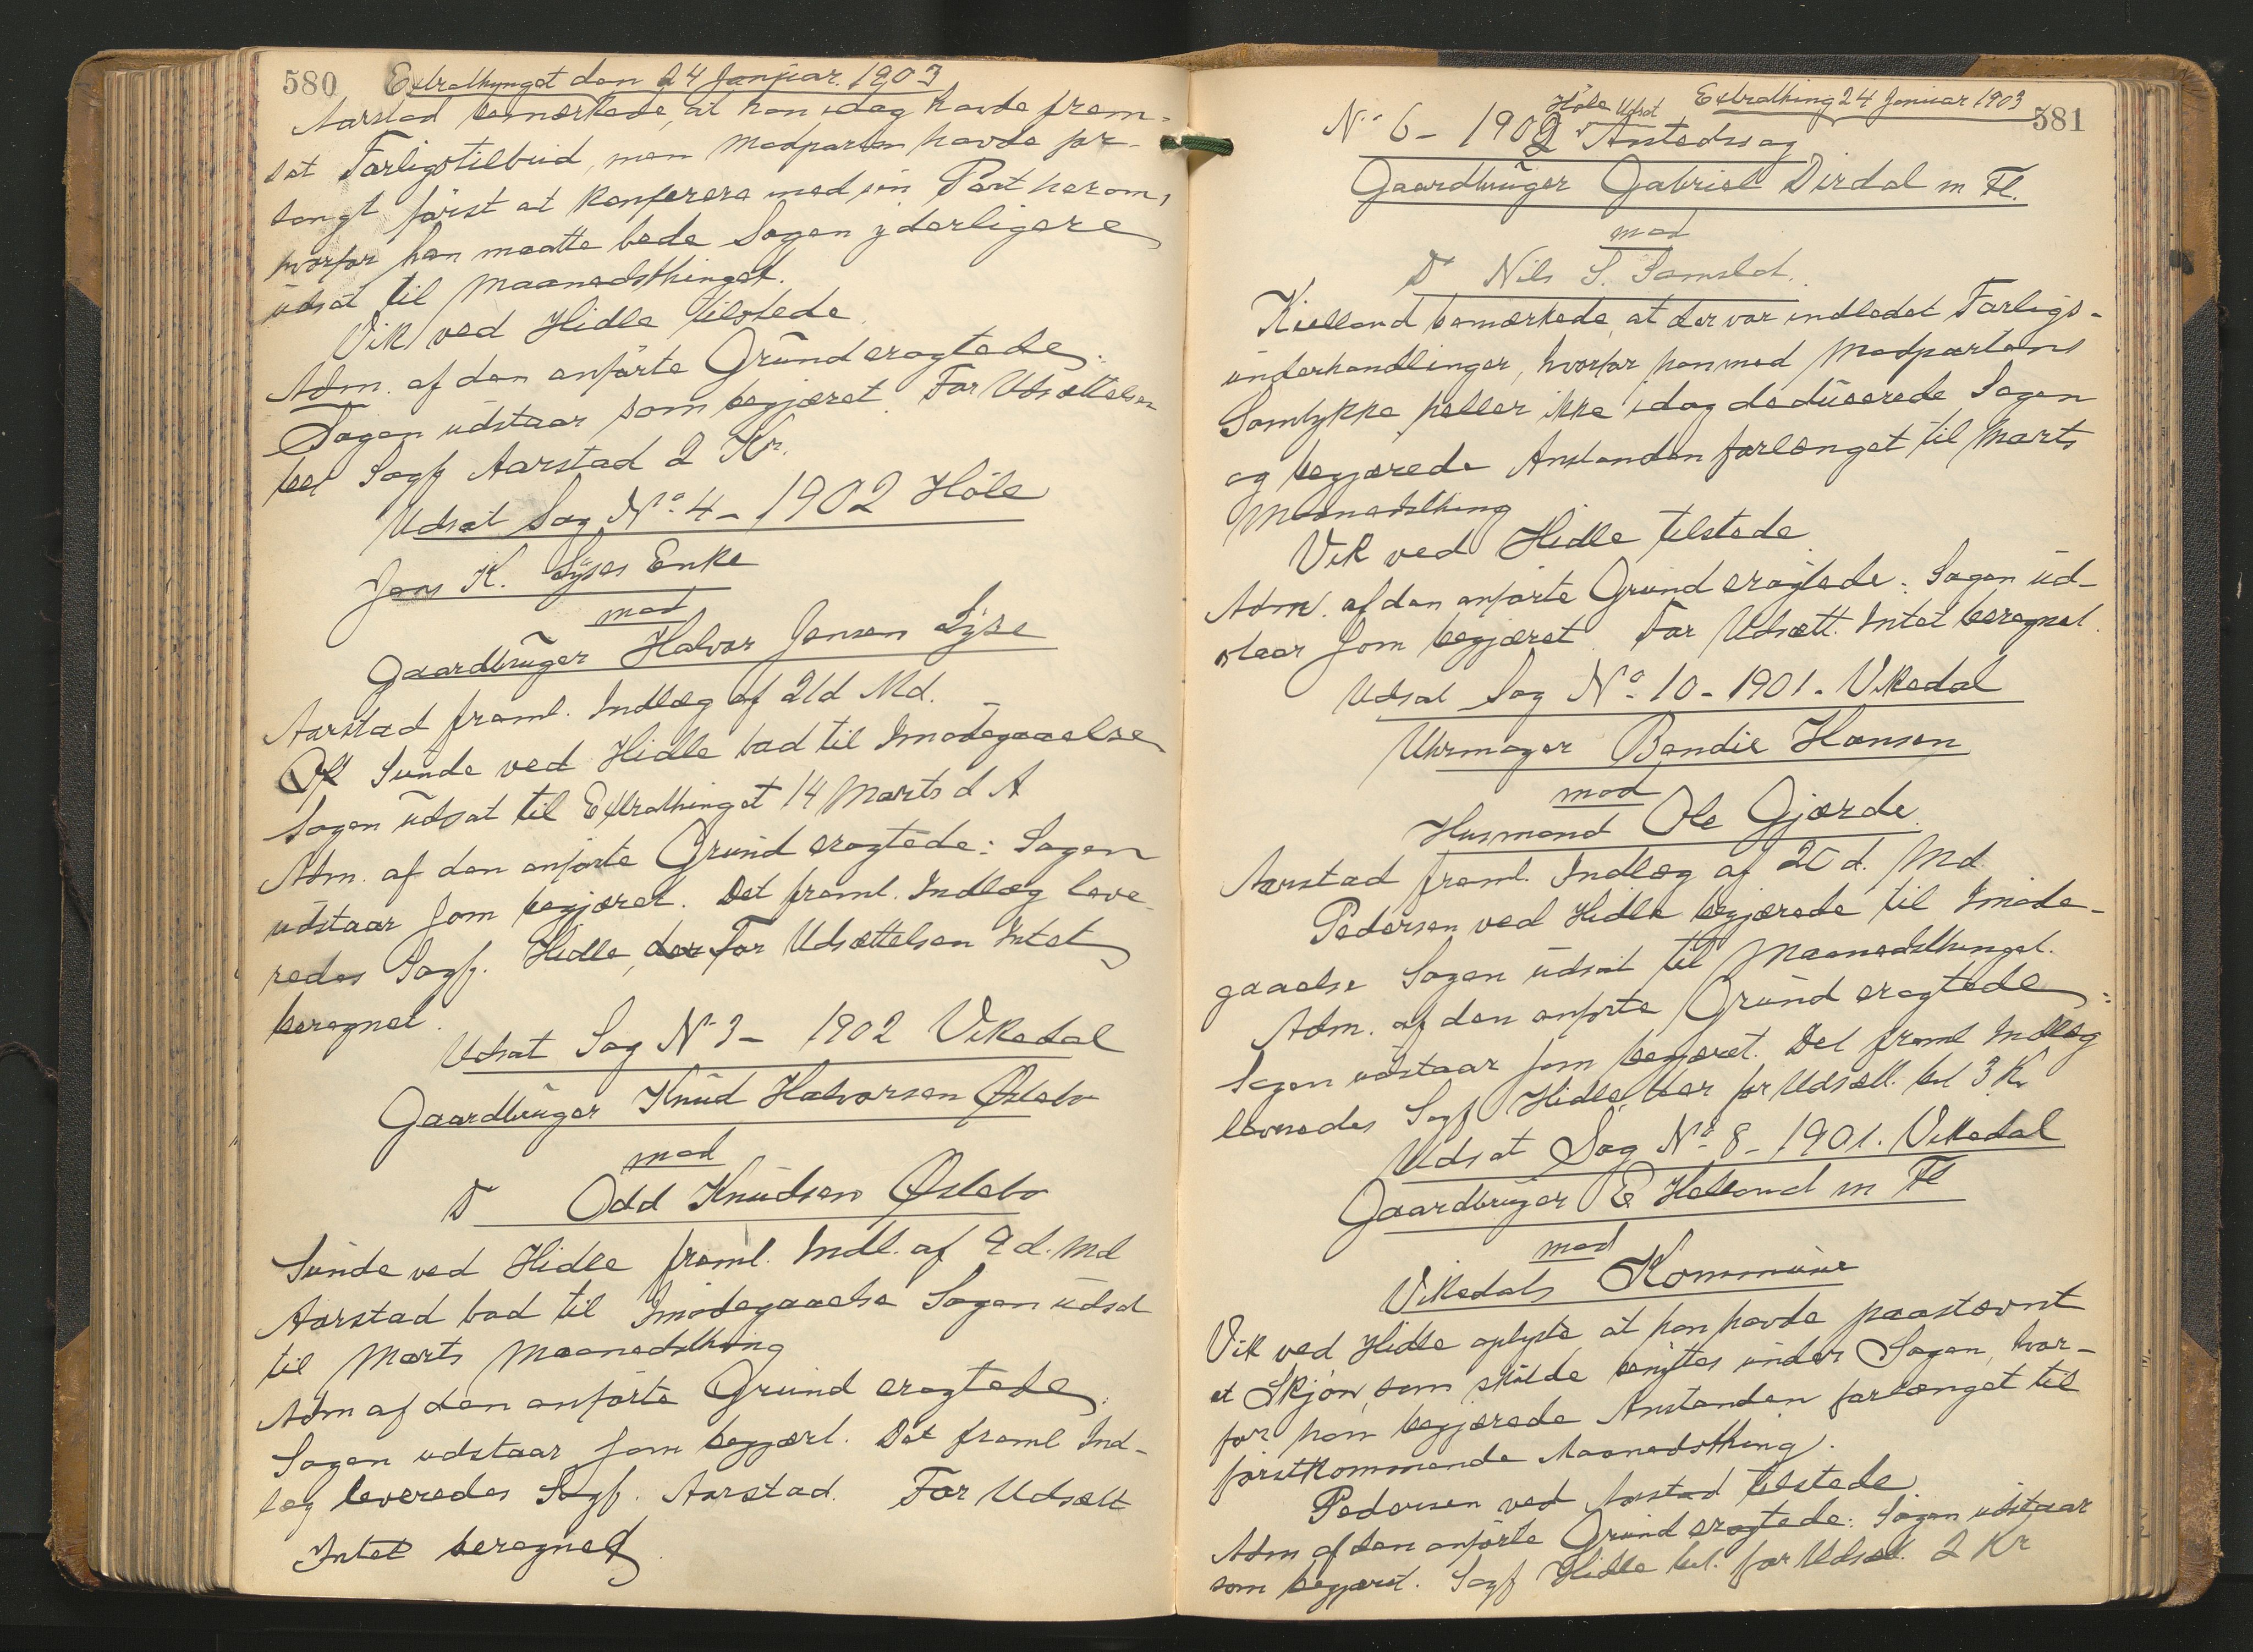 580 Extrathinget den 24 Januar 1903
Aarstad bemærkede, at han idag havde frem-
sat Forligstilbud, men Modparten havde for-
langt først at konferere med sin Part herom,
hvorfor han maatte bede Sagen yderligere
udsat til Maanedsthinget.
Vik ved Hidle tilstede.
Adm. af den anførte Grund eragtede:
Sagen udstaar som begjæret. For Udsættelsen
bet Sagf Aarstad 2 Kr.
Udsat Sag No. 4 - 1902 Høle
Jens K. Lyses Enke
mod
Gaardbruger Halvor Jensen Lyse
Aarstad freml. Indlæg af 21d Md.
Of Sunde ved Hidle bad til Imødegaaelse
Sagen udsat til Extrathinget 14 Marts d A
Adm. af den anførte Grund eragtede: Sagen
udstaar som begjæret. Det freml. Indlæg leve-
redes Sagf. Hidle, der For Udsættelsen Intet
beregnet.
Udsat Sag No 3 - 1902 Vikedal
Gaardbruger Knud Halvorsen Østebø
mod
Do Odd Knudsen Østebø
Sunde ved Hidle freml. Indl. af 9 d. Md
Aarstad bad til Imødegaaelse Sagen udsat
til Marts Maanedsthing
Adm af den anførte Grund eragtede:
Sagen udstaar som begjært. Det freml Ind-
læg leveredes Sagf. Aarstad. For Udsætt
Intet beregnet
Extrathing 24 Januar 1903 581
Høle Udsat
No 6 - 1902 Anstedssag
Gaardbruger Gabriel Dirdal m Fl.
mod
Do Nils S.
Kielland bemærkede, at der var indledet Forligs-
underhandlinger, hvorfor han med Modpartens
Samtykke heller ikke idag deducerede Sagen
og begjærede Anstanden forlænget til Marts
Maanedsthing
Vik ved Hidle tilstede
Adm. af den anførte Grund eragtede: Sagen ud-
staar som begjæret. For Udsætt. Intet beregnet.
Udsat Sag No. 10 - 1901. Vikedal
Uhrmager Bendix Hansen
mod
Husmand Ole Gjærde.
Aarstad freml. Indlæg af d. Md.
Pedersen ved Hidle begjærede til Imøde-
gaaelse Sagen udsat til Maanedsthinget.
Adm. af den anførte Grund eragtede:
Sagen udstaar som begjæret. Det freml Indlæg
leveredes Sagf Hidle, der for Udsætt. bet 3 Kr
Udsat Sag No. 8 - 1901. Vikedal
Gaardbruger E Helland m Fl
mod
Vikedals Kommune
Vik ved Hidle oplyste at han havde paastævnt
et Skjøn, som skulde benyttes under Sagen, hvor-
for han begjærede Anstanden forlænget til
førstkommende Maanedsthing.
Pedersen ved Aarstad tilstede
Adm af den anførte Grund eragtede: Sagen udstaar
som begjæret. Sagf Hidle bet. for Udsæt. 2 Kr